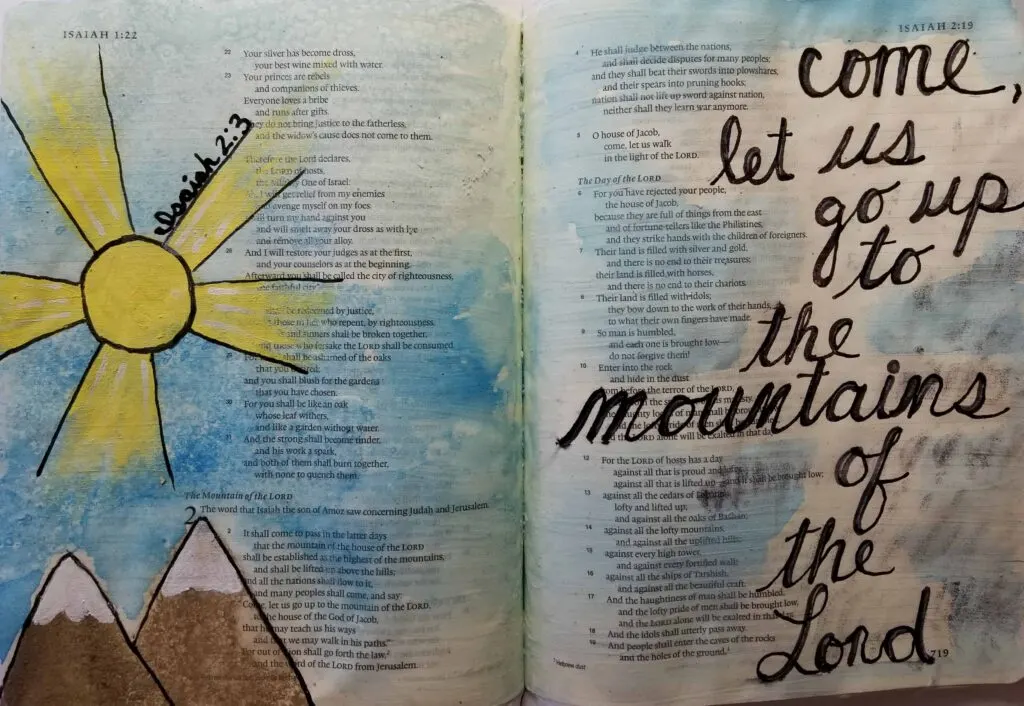 ISAIAH 1:22
22 Your silver has become dross,
your best wine mixed with water.
23 Your princes are rebels
and companions of thieves.
Everyone loves a bribe
and runs after gifts.
do not bring justice to the fatherless,
and the widow's cause does not come to them.
Isaiah 2:3
Therefore the Lord declares,
the LORD of hosts,
the One of Israel:
get relief from my enemies
avenge myself on my foes.
will turn my hand against you
and will smelt away your dross as with lye
and remove all your alloy.
26 And I will restore your judges as at the first,
and your counselors as at the beginning.
Afterward you shall be called the city of righteousness,
faithful city
redeemed by justice,
those in her who repent, by righteousness.
and sinners shall be broken together,
and those who forsake the LORD shall be consumed.
29 For shall be ashamed of the oaks
that you desired;
and you shall blush for the gardens
that you have chosen.
30 For you shall be like an oak
whose leaf withers,
and like a garden without water.
31 And the strong shall become tinder,
and his work a spark,
and both of them shall burn together,
with none to quench them.
The Mountain of the LORD
2 The word that Isaiah the son of Amoz saw concerning Judah and Jerusalem.
2 It shall come to pass in the latter days
that the mountain of the house of the LORD
shall be established as the highest of the mountains,
and shall be lifted up above the hills;
and all the nations shall flow to it,
3 and many peoples shall come, and say:
Come, let us go up to the mountain of the LORD,
to the house of the God of Jacob,
that he may teach us his ways
and that we may walk in his paths."
For out of Zion shall go forth the law,2
and the word of the LORD from Jerusalem.
ISAIAH 2:19
4 He shall judge between the nations,
and shall decide disputes for many peoples;
and they shall beat their swords into plowshares,
and their spears into pruning hooks;
nation shall not lift up sword against nation,
neither shall they learn war anymore.
5 O house of Jacob,
come, let us walk
in the light of the LORD.
The Day of the LORD
6 For you have rejected your people,
the house of Jacob,
because they are full of things from the east
and of fortune-tellers like the Philistines,
and they strike hands with the children of foreigners.
7 Their land is filled with silver and gold,
and there is no end to their treasures;
their land is filled with horses,
and there is no end to their chariots.
8 Their land is filled with idols;
they bow down to the work of their hands,
to what their own fingers have made.
9 So man is humbled,
and each one is brought low—
do not forgive them!
10 Enter into the rock
and hide in the dust
from before the terror of the LORD,
of man shall be
and the LORD alone will be exalted in that day.
12 For the LORD of hosts has a day
against all that is proud and lofty,
against all that is lifted up—and it shall be brought low;
13 against all the cedars of Lebanon,
lofty and lifted up;
and against all the oaks of Bashan;
14 against all the lofty mountains,
and against all the uplifted hills;
15 against every high tower,
and against every fortified wall;
16 against all the ships of Tarshish,
and against all the beautiful craft.
17 And the haughtiness of man shall be humbled,
and the lofty pride of men shall be brought low,
and the LORD alone will be exalted in that
18 And the idols shall utterly pass away.
19 And people shall enter the caves of the rocks
and the holes of the ground,1
1 Hebrew dust
719
come,
let us
go up
to
the
mountains
of
the
Lord